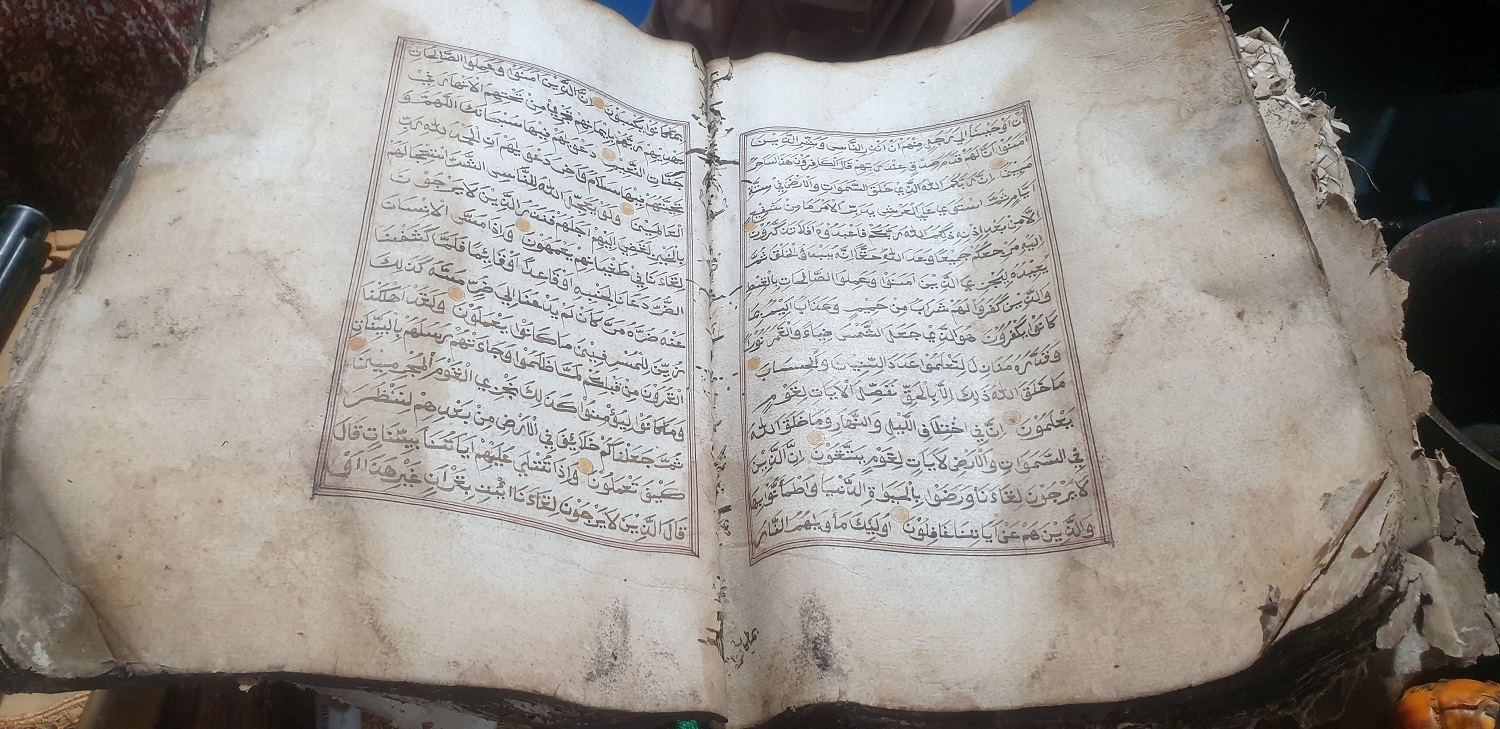 أَوْحَيْنَا إِلَى رَجُلٍ مِنْهُمْ أَنْ أَنْذِرِ النَّاسَ وَبَشِّرِ الَّذِينَ
آمَنُوا أَنَّ لَهُمْ قَدَمَ صِدْقٍ عِنْدَ رَبِّهِمْ قَالَ الْكَافِرُونَ هَذَا لَسَاحِرٌ
مُبِينٌ إِنَّ رَبَّكُمُ اللهُ الَّذِي خَلَقَ السَّمَوَاتِ وَالْأَرْضَ فِي سِتَّةِ
أَيَّامٍ ثُمَّ اسْتَوَى عَلَى الْعَرْشِ يُدَبِّرُ الْأَمْرَ مَا مِنْ شَفِيعٍ
إِلَّا مِنْ بَعْدِ إِذْنِهِ ذَلِكُمُ اللهُ رَبُّكُمْ فَاعْبُدُوهُ أَفَلَا تَذَكَّرُونَ
إِلَيْهِ مَرْجِعُكُمْ جَمِيعًا وَعْدَ اللهِ حَقًّا إِنَّهُ يَبْدَؤُ الْخَلْقَ ثُمَّ
يُعِيدُهُ لِيَجْزِيَ الَّذِينَ آمَنُوا وَعَمِلُوا الصَّالِحَاتِ بِالْقِسْطِ
وَالَّذِينَ كَفَرُوا لَهُمْ شَرَابٌ مِنْ حَمِيمٍ وَعَذَابٌ أَلِيمٌ بِمَا
كَانُوا يَكْفُرُونَ هُوَ الَّذِي جَعَلَ الشَّمْسَ ضِيَاءً وَالْقَمَرَ نُورًا
وَقَدَّرَهُ مَنَازِلَ لِتَعْلَمُوا عَدَدَ السِّنِينَ وَالْحِسَابَ
مَا خَلَقَ اللهُ ذَلِكَ إِلَّا بِالْحَقِّ نُفَصِّلُ الْآيَاتِ لِقَوْمٍ
يَعْلَمُونَ إِنَّ فِي اخْتِلَافِ اللَّيْلِ وَالنَّهَارِ وَمَا خَلَقَ اللهُ
فِي السَّمَوَاتِ وَالْأَرْضِ لَآيَاتٍ لِقَوْمٍ يَتَّقُونَ إِنَّ الَّذِينَ
لَا يَرْجُونَ لِقَاءَنَا وَرَضُوا بِالْحَيَوةِ الدُّنْيَا وَاطْمَأَنُّوا بِهَا
وَالَّذِينَ هُمْ عَنْ آيَاتِنَا غَافِلُونَ أُولَئِكَ مَأْوَيهُمُ النَّارُ
بما كانوا
بِمَا كَانُوا يَكْسِبُونَ إِنَّ الَّذِينَ آمَنُوا وَعَمِلُوا الصَّالِحَاتِ
يَهْدِيهِمْ رَبُّهُمْ بِإِيمَانِهِمْ تَجْرِي مِنْ تَحْتِهِمُ الْأَنْهَارُ فِي
جَنَّاتِ النَّعِيمِ دَعْوَيهُمْ فِيهَا سُبْحَانَكَ اللَّهُمَّ وَ
تَحِيَّتُهُمْ فِيهَا سَلَامٌ وَآخِرُ دَعْوَيهُمْ أَنِ الْحَمْدُ لِلهِ رَبِّ
الْعَالَمِينَ وَلَوْ يُعَجِّلُ اللهُ لِلنَّاسِ الشَّرَّ اسْتِعْجَالَهُمْ
بِالْخَيْرِ لَقُضِيَ إِلَيْهِمْ أَجَلُهُمْ فَنَذَرُ الَّذِينَ لَا يَرْجُونَ
لِقَاءَنَا فِي طُغْيَانِهِمْ يَعْمَهُونَ وَإِذَا مَسَّ الْإِنْسَانَ
الضُّرُّ دَعَانَا لِجَنْبِهِ أَوْ قَاعِدًا أَوْ قَائِمًا فَلَمَّا كَشَفْنَا
عَنْهُ ضُرَّهُ مَرَّ كَأَنْ لَمْ يَدْعُنَا إِلَى ضُرٍّ مَسَّهُ كَذَلِكَ
زُيِّنَ لِلْمُسْرِفِينَ مَا كَانُوا يَعْمَلُونَ وَلَقَدْ أَهْلَكْنَا
الْقُرُونَ مِنْ قَبْلِكُمْ لَمَّا ظَلَمُوا وَجَاءَتْهُمْ رُسُلُهُمْ بِالْبَيِّنَاتِ
وَمَا كَانُوا لِيُؤْمِنُوا كَذَلِكَ نَجْزِي الْقَوْمَ الْمُجْرِمِينَ
ثُمَّ جَعَلْنَاكُمْ خَلَائِفَ فِي الْأَرْضِ مِنْ بَعْدِهِمْ لِنَنْظُرَ
كَيْفَ تَعْمَلُونَ وَإِذَا تُتْلَى عَلَيْهِمْ آيَاتُنَا بَيِّنَاتٍ قَالَ
قَالَ الَّذِينَ لَا يَرْجُونَ لِقَاءَنَا ائْتِ بِقُرْآنٍ غَيْرِ هَذَا أَوْ